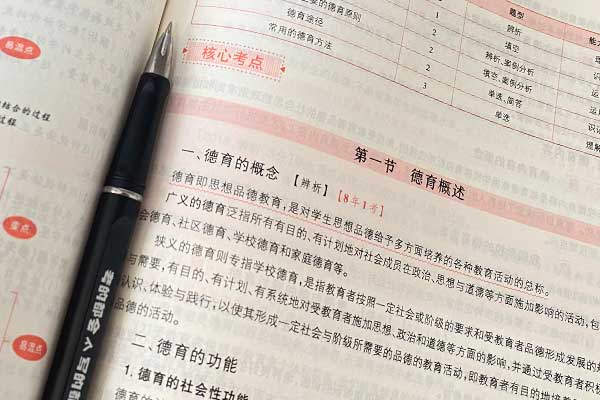 题型
要的德育原则 1 辨析
德育途径 2 填空
常用的德育方法 2 辨析、案例分析
2 填空、案例分析
3 单选、简答
单选
核心考点
易混点
结合的过程
过程
查点
易混点
第一节 德育概述
一、德育的概念 【辨析】【8年1考】
德育即思想品德教育,是对学生思想品德给予多方面培养的各种教育活动的总称。
广义的德育泛指所有有目的、有计划地对社会成员在政治、思想与道德等方面施加影响的活动,包
会德育、社区德育、学校德育和家庭德育等。
狭义的德育则专指学校德育,是指教育者按照一定社会或阶级的要求和受教育者品德形成发展的规
与需要,有目的、有计划、有系统地对受教育者施加思想、政治和道德等方面的影响,并通过受教育者积极
认识、体验与践行,以使其形成一定社会与阶级所需要的品德的教育活动,即教育者有目的地培养
品德的活动。
二、德育的功能
1. 德育的社会性功能